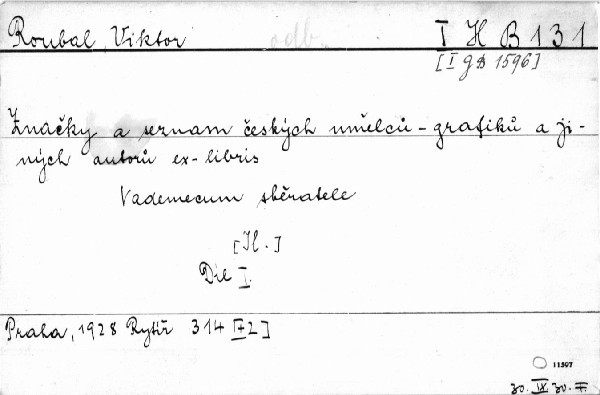 Roubal, Viktor odb. I H B 131
[I g B 1596]
Značky a seznam českých umělců-grafiků a ji-
ných autorů ex-libris
Vademecum sběratele
[Il.]
Díl I.
Praha, 1928 Rytíř 314 [72]
11597
30. IX. 30. F.